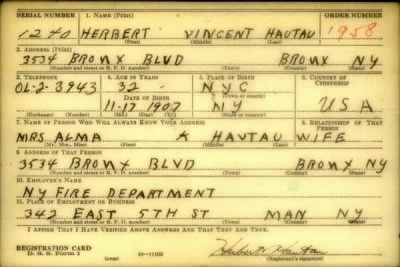 SERIAL NUMBER 1. NAME (Print) ORDER NUMBER
1240 HERBERT VINCENT HAUTAU 1958
(First) (Middle) (Last)
2. ADDRESS (Print)
3534 BRONX BLVD BRONX NY
(Number and street or R. F. D. number) (Town) (County) (State)
3. TELEPHONE 4. AGE IN YEARS 5. PLACE OF BIRTH 6. COUNTRY OF CITIZENSHIP
OL-2-3943 32 NYC
DATE OF BIRTH (Town or county)
11-17 1907 NY USA
(Exchange) (Number) (Mo.) (Day) (Yr.) (State or country)
7. NAME OF PERSON WHO WILL ALWAYS KNOW YOUR ADDRESS 8. RELATIONSHIP OF THAT PERSON
MRS ALMA K HAUTAU WIFE
(Mr., Mrs., Miss) (First) (Middle) (Last)
9. ADDRESS OF THAT PERSON
3534 BRONX BLVD BRONX NY
(Number and street or R. F. D. number) (Town) (County) (State)
10. EMPLOYER'S NAME
NY FIRE DEPARTMENT
11. PLACE OF EMPLOYMENT OR BUSINESS
342 EAST 5TH ST MAN NY
(Number and street or R. F. D. number) (Town) (County) (State)
I AFFIRM THAT I HAVE VERIFIED ABOVE ANSWERS AND THAT THEY ARE TRUE.
REGISTRATION CARD
D. S. S. Form 1 (over) Herbert Hautau
(Registrant's signature)